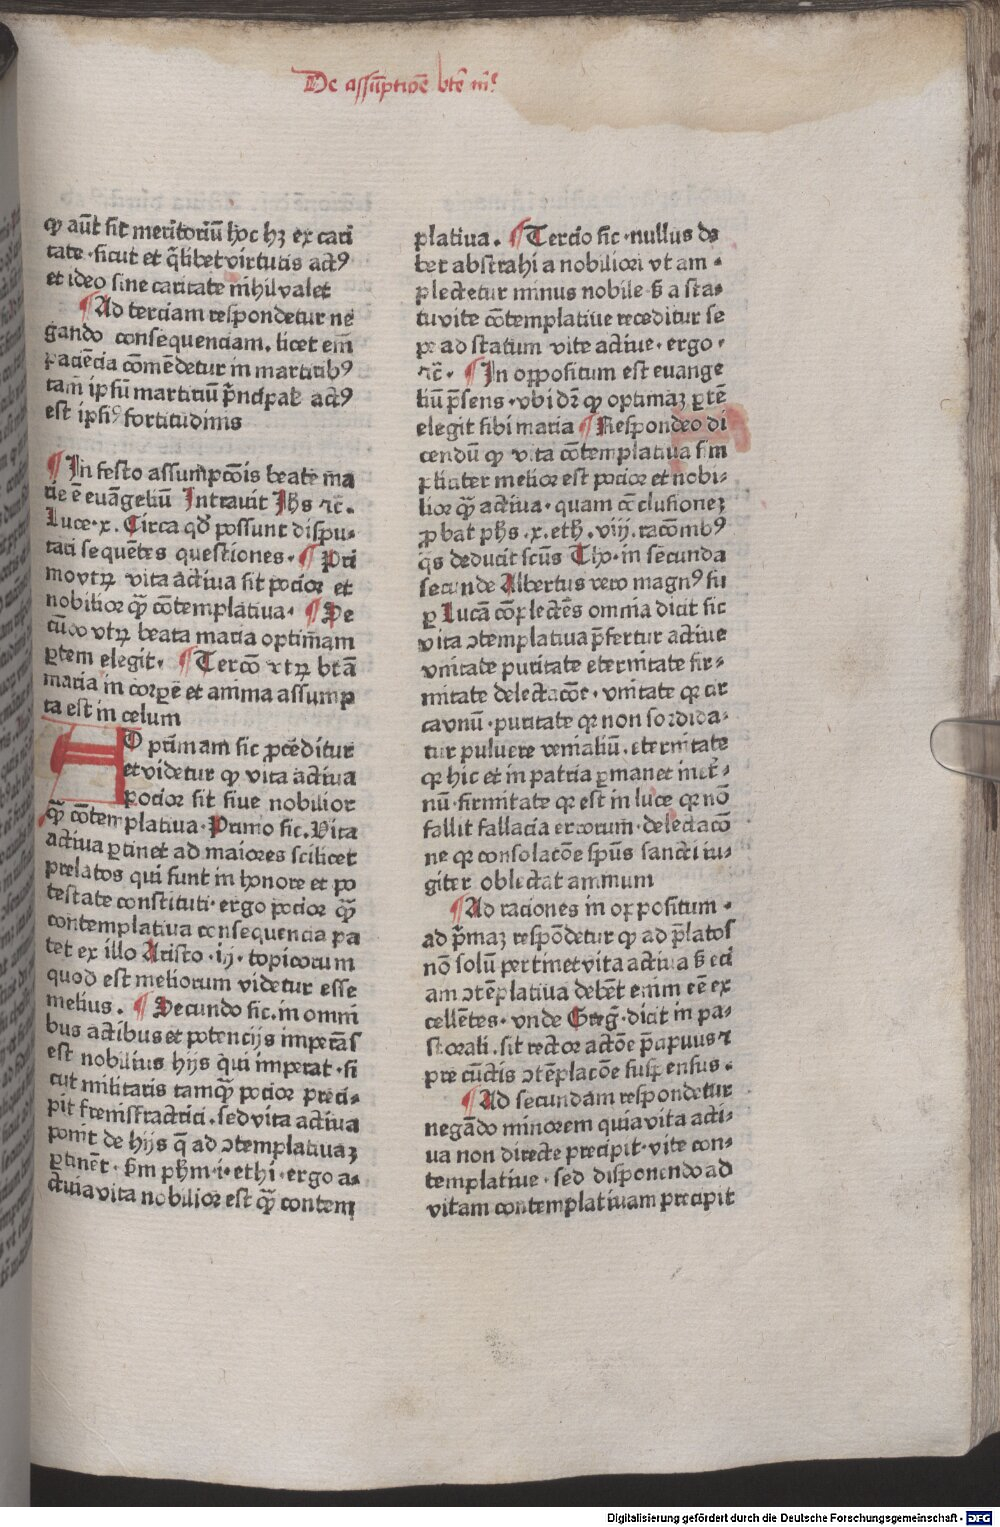 De assūptiōe btē mͤ
ꝙ aūt sit meritoriū hoc hꝫ ex cari
tate·sicut et q̄libet virtutis actꝰ
et ideo sine caritate nihil valet
¶ Ad terciam respondetur ne
gando consequenciam. licet em̄
paciēcia cōmēdetur in martiribꝰ
tam̄ ipsū martiriū p̄ncipal' actꝰ
est ipsiꝰ fortitudinis
¶ In festo assumpcōis beate ma
rie ē euāgeliū Intrauit Jhs ⁊c̄.
Luce·x. Circa qd' possunt dispu-
tari sequētes questiones. ¶ Pri
mo vtrꝝ vita actiua sit pocior et
nobilior qꝫ̄ cōtemplatiua. ¶ Se
cūdo vtrꝝ beata maria optimam
ꝑtem elegit. ¶ Tercō vtrꝝ btā
maria in corpe et anima assump
ta est in celum
AD primam sic ꝓcēditur
et videtur ꝙ vita actiua
pocior sit siue nobilior
qꝫ̄ cōtemplatiua. Primo sic. Vita
actiua ꝑtinet ad maiores scilicet
prelatos qui sunt in honore et po
testate constituti·ergo pocior qꝫ̄
contemplatiua consequencia pa
tet ex illo Aristo·ij·topicorum
quod est meliorum videtur esse
melius. ¶ Secundo sic. in omni
bus actibus et potencijs imperās
est nobilius hijs qui imperat·si
cut militaris tamqꝫ̄ pocior preci-
pit frenifractrici. sed vita actiua
ponit de hijs q̄ ad ↄtemplatiuaꝫ
ꝑtinēt. Sm̄ phm̄·i·ethi·ergo a-
ctiuia vita nobilior est qꝫ̄ contem
platiua. ¶ Tercio sic·nullus de
bet abstrahi a nobiliori vt am-
plectetur minus nobile·s̄ a sta-
tu vite cōtemplatiue receditur se
pe ad statum vite actiue·ergo·
⁊c̄. ¶ In oppositum est euange
liū p̄sens·vbi dr̄ ꝙ optimaꝫ ꝑtē
elegit sibi maria ¶ Respondeo di
cendū ꝙ vita cōtemplatiua sim
pliciter melior est pocior et nobi-
lior qꝫ̄ actiua·quam cōclusioneꝫ
ꝓbat phs·x. eth. viij. racōnibꝰ
q̄s deducit scūs Tho·in secunda
secunde Albertus vero magnꝰ su
ꝑ Lucā cōplectēs omnia dicit sic
vita ↄtemplatiua p̄fertur actiue
vnitate puritate eternitate fir-
mitate delectacōe·vnitate qꝛ cir
ca vnū·puritate qꝛ non sordida-
tur puluere venialiū. eternitate
qꝛ hic et in patria ꝑmanet inet̄-
nū·firmitate qꝛ est in luce qꝛ nō
fallit fallacia errorum·delectacō
ne qꝛ consolacōe spūs sancti iu-
giter oblectat animum
¶ Ad raciones in oppositum·
ad p̄maꝫ respōdetur ꝙ ad p̄latos
nō solū pertinet vita actiua s̄ eci
am ↄtēplatiua debēt enim eē ex
cellētes·vnde Greḡ·dicit in pa-
storali. sit rector actōe p̄cipuus ⁊
pre cūctis ↄtēplacōe suspensus·
¶ Ad secundam respondetur
negādo minorem quia vita acti-
ua non directe precipit·vite con-
templatiue·sed disponendo ad
vitam contemplatiuam precipit
Digitalisierung gefördert durch die Deutsche Forschungsgemeinschaft - DFG